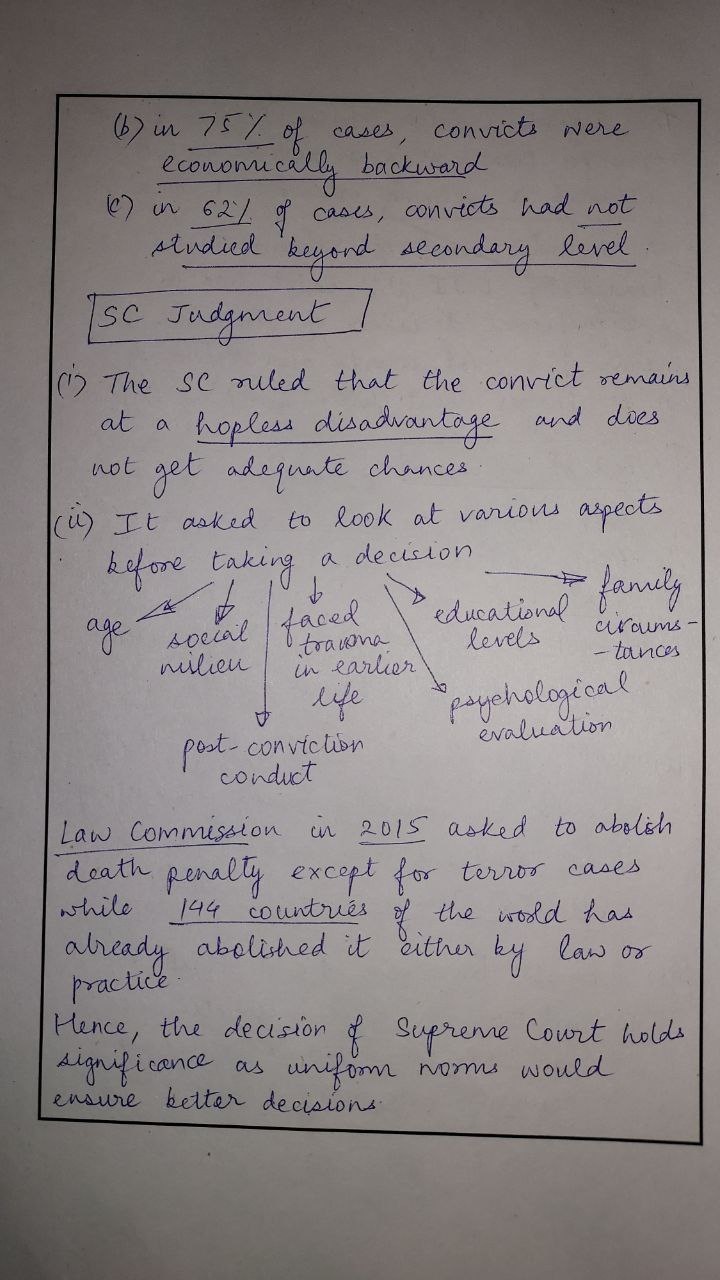 (b) in 75% of cases, convicts were
economically backward
(c) in 62% of cases, convicts had not
studied beyond secondary level.
SC Judgment
(i) The SC ruled that the convict remains
at a hopless disadvantage and does
not get adequate chances.
(ii) It asked to look at various aspects
before taking a decision
age
social
milieu
post-conviction
conduct
faced
trauma
in earlier
life
educational
levels
psychological
evaluation
family
circums-
-tances
Law Commission in 2015 asked to abolish
death penalty except for terror cases
while 144 countries of the world has
already abolished it either by law or
practice.
Hence, the decision of Supreme Court holds
significance as uniform norms would
ensure better decisions.